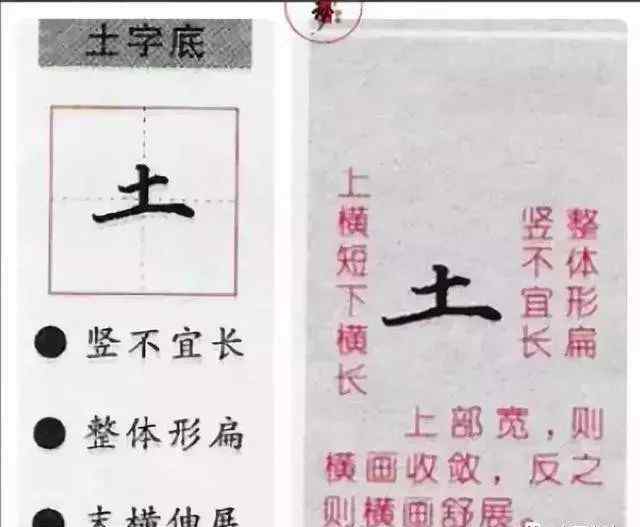 土字底
土
竖不宜长
整体形扁
末横伸展
上横短下横长
土
整体形扁
竖不宜长
上部宽，则
横画收敛，反之
则横画舒展。